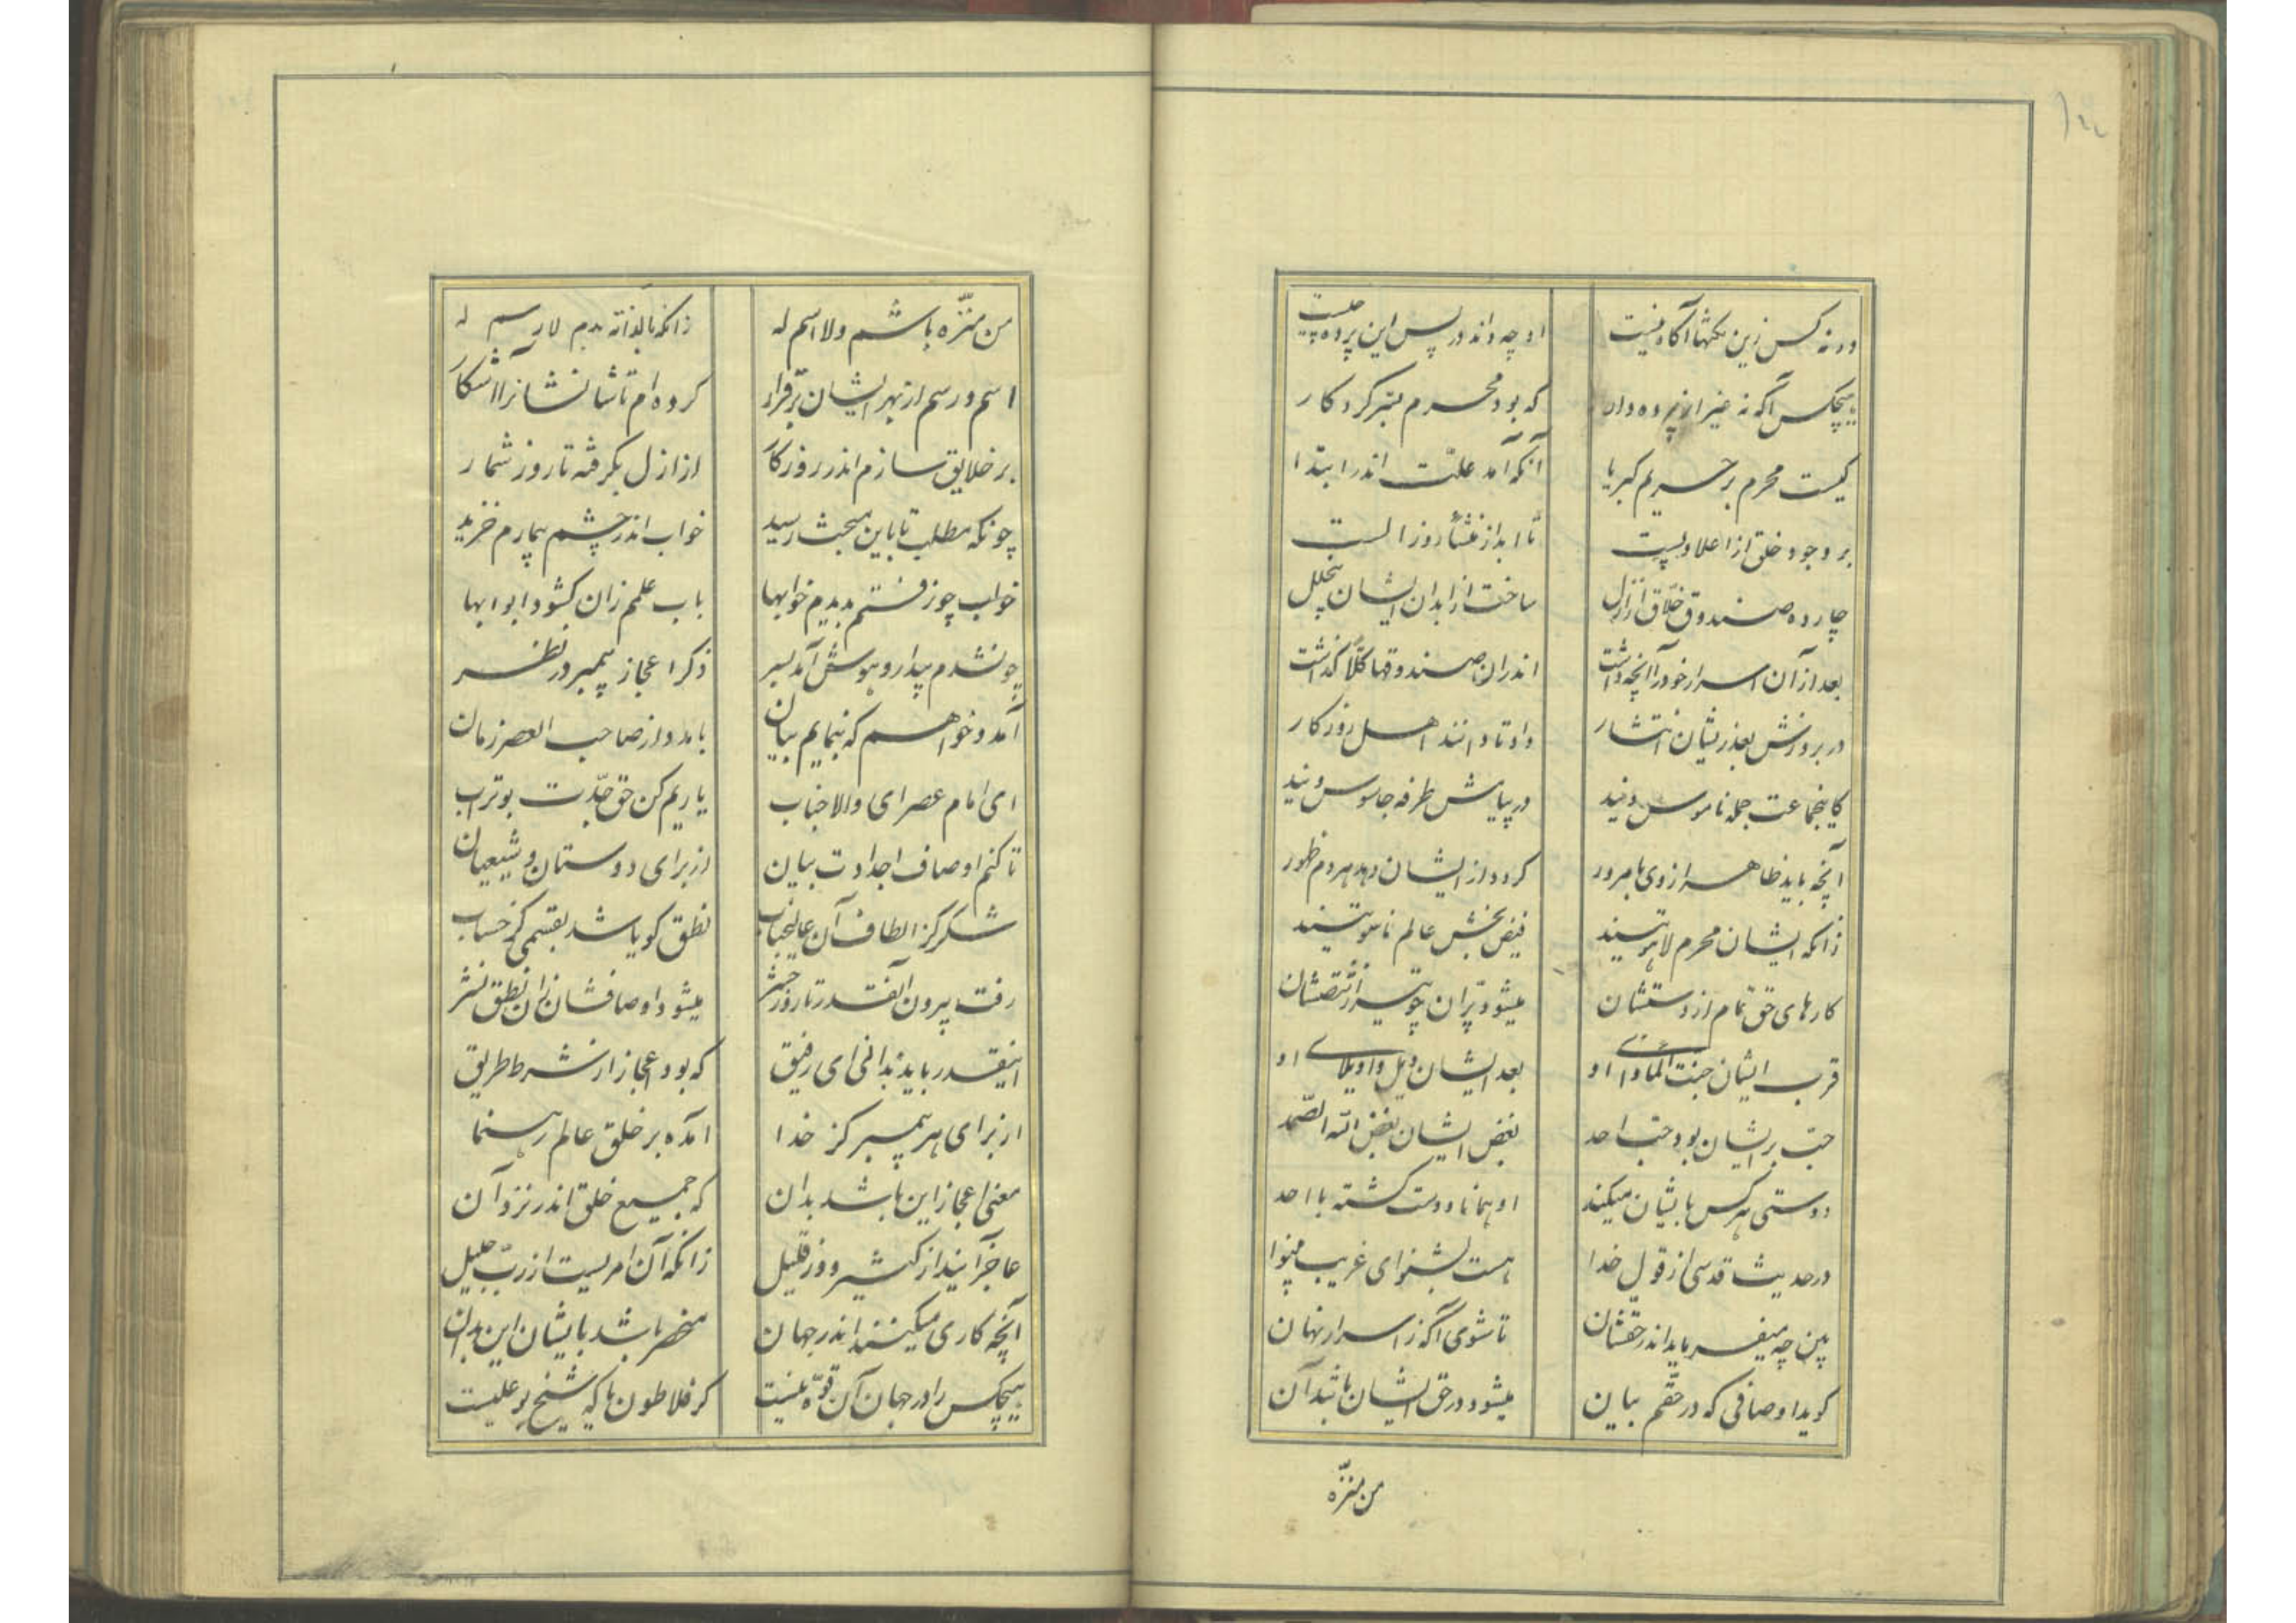 ورنه کس زین نکتها آگاه نیست
او چه داند در پس این پرده چیست
هیچکس آگه نه غیر از پرده دار
که بود محرم بستر کردکار
کیست محرم بر حریم کبریا
آنکه آمد علت اندر ابتدا
بر وجود خلق از اعلا و پست
تا ابد از منشأ روز الست
چارده صندوق خلاق ازل
ساخت از ابدان ایشان بیخلل
بعد از آن اسرار خود را آنچه داشت
اندران صندوقها کلاً گذاشت
در بروزش بعد زیشان انتشار
داد تا دانند اهل روزکار
کاینجماعت جمله ناموس ویند
در پیایش طرفه جاسوس ویند
آنچه باید ظاهر از وی با مرور
کردد از ایشان دهد هر دم ظهور
زانکه ایشان محرم لاهوتیند
فیض بخش عالم ناسوتیند
کارهای حق تمام از دستشان
میشود پران چو تیر از شصتشان
قرب ایشان جنت المأوای او
بعد ایشان ویل و اویلای او
حب بر ایشان بود حب احد
بغض ایشان بغض الله الصمد
دوستی هر کس بایشان میکند
او همانا دوست کشته با احد
در حدیث قدسی از قول خدا
هست بشنو ای غریب مینوا
بین چه میفرماید اندر حقشان
تا شوی آگه ز اسرار نهان
کوید اوصافی که در حقم بیان
میشود در حق ایشان باشد آن
من منزه
من منزه باشم و لا اسم له
زانکه بالذاته بدم لا رسم له
اسم و رسم از بهر ایشان برقرار
کرده ام تا شانشانرا آشکار
بر خلایق سازم اندر روزکار
از ازل بکرفته تا روز شمار
چونکه مطلب تا باین مبحث رسید
خواب اندر چشم بیمارم خزید
خواب چون رفتم بدیدم خوابها
باب علمم زان کشود ابوابها
چونشدم بیدار و هوش آمد بسر
ذکر اعجاز پیمبر در نظر
آمد و خواهم که بنمایم بیان
با مدد از صاحب العصر زمان
ای امام عصر ای والا جناب
یاریم کن حق جدت بوتراب
تا کنم اوصاف اجدادت بیان
از برای دوستان و شیعیان
شکر کز الطاف آن عالیجناب
نطق کویا شد بقسمی کز حساب
رفت بیرون آنقدر تا روز حشر
میشود اوصافشان زان نطق نشر
اینقدر باید بدانی ای رفیق
که بود اعجاز از شرط طریق
از برای هر پیمبر کز خدا
آمده بر خلق عالم رهنما
معنی اعجاز این باشد بدان
که جمیع خلق اندر نزد آن
عاجز آیند از کثیر و از قلیل
زانکه آن امریست از رب جلیل
آنچه کاری میکنند اندر جهان
منحصر باشد بایشان این بدان
هیچکس را در جهان آن قوه نیست
کر فلاطون یا که شیخ بو علیست